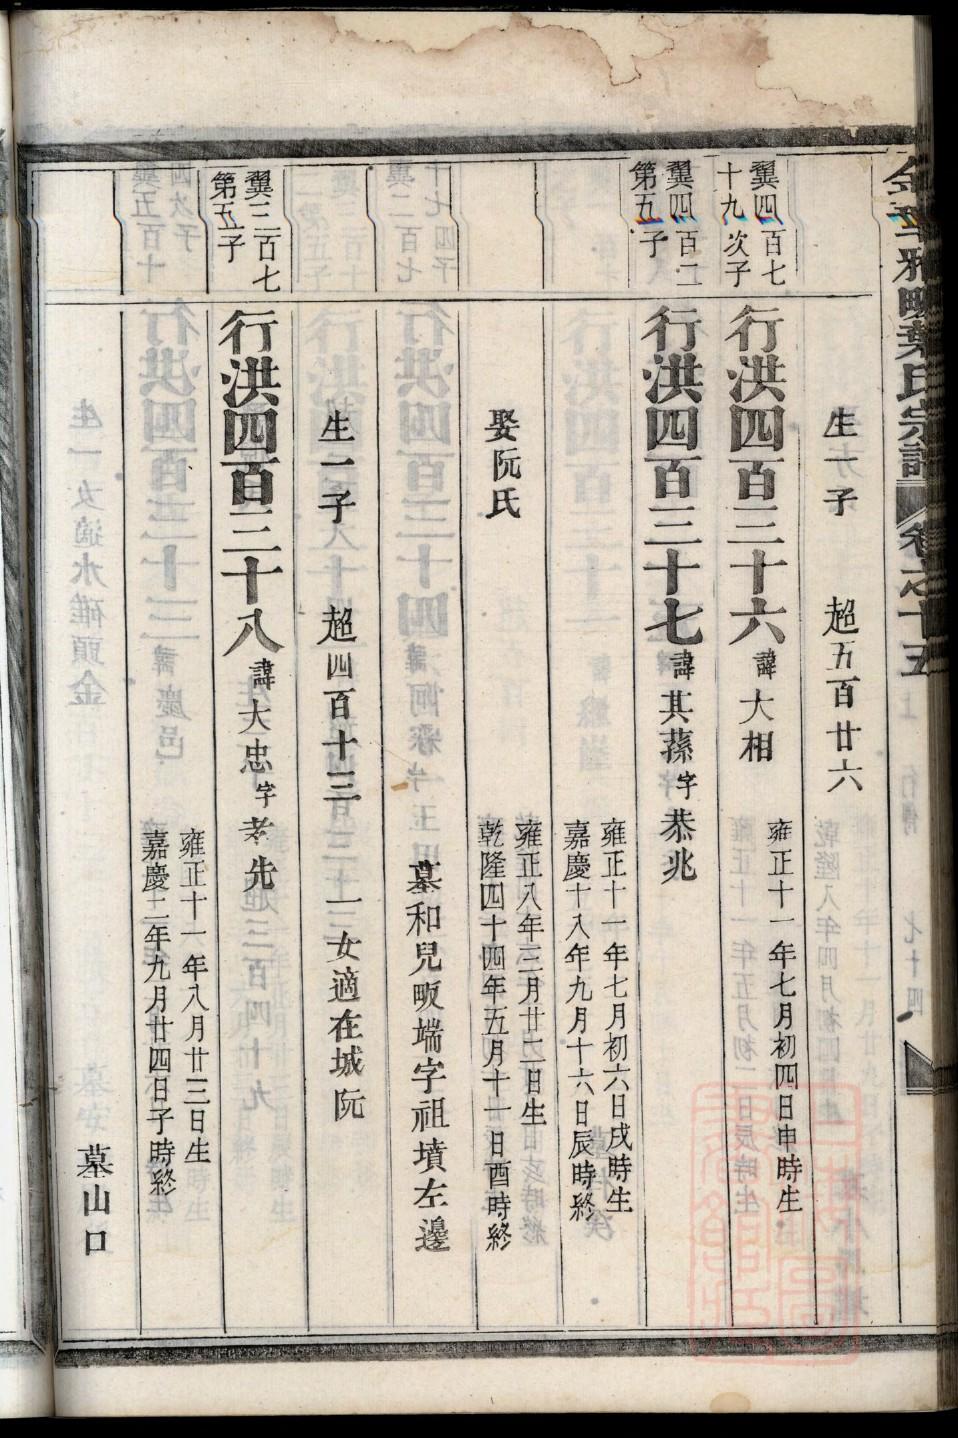 金華雅畈葉氏宗譜 卷之十五
生一子 超五百廿六
翼四百七
十九次子
行洪四百三十六 諱大相
雍正十一年七月初四日申時生
翼四百二
第五子
行洪四百三十七 諱其蓀 字恭兆
雍正十一年七月初六日戌時生
嘉慶十八年九月十六日辰時終
娶阮氏
雍正八年三月廿二日生
乾隆四十四年五月十一日酉時終
墓和兒畈端字祖墳左邊
生一子 超四百十三 一女適在城阮
翼三百七
第五子
行洪四百三十八 諱大忠 字孝先
雍正十一年八月廿三日生
嘉慶二年九月廿四日子時終
墓山口